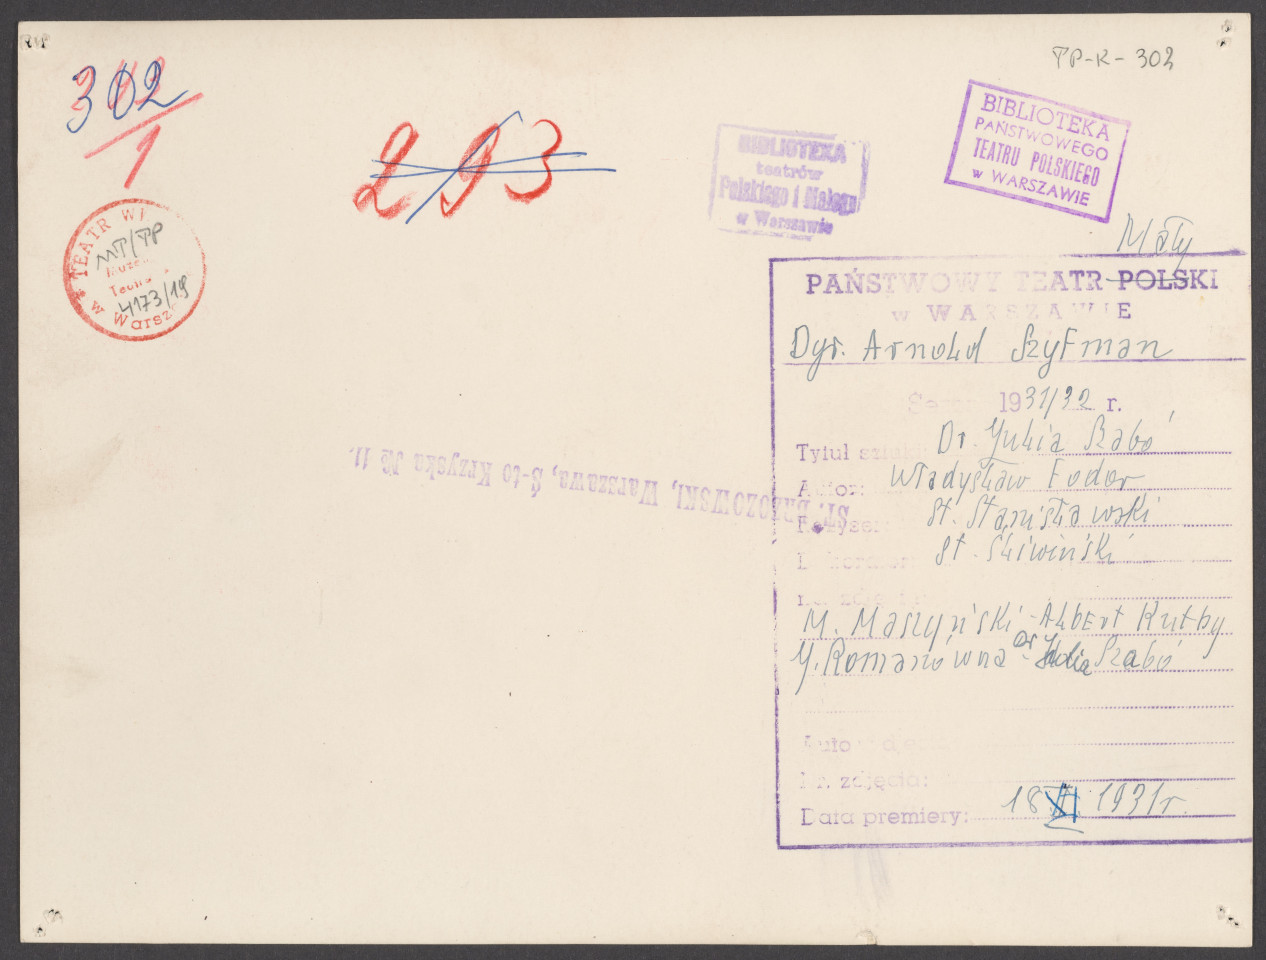 TP-K-302
302
1
293
BIBLIOTEKA
PAŃSTWOWEGO
TEATRU POLSKIEGO
w WARSZAWIE
BIBLIOTEKA
teatrów
Polskiego i Małego
w Warszawie
TEATR WI
MT/TP
Teatr
4173/19
w Warsz
Mały
PAŃSTWOWY TEATR POLSKI
w WARSZAWIE
Dyr. Arnold Szyfman
Sezon 1931/32 r.
Tytuł sztuki Dr. Julia Szabó
Autor: Władysław Fodor
Reżyser St. Stanisławski
Dekorator: St. Śliwiński
na zdjęciu
M. Maszyński - Albert Kutby
J. Romanówna - Dr Julia Szabó
Autor zdjęcia
Nr. zdjęcia:
Data premiery: 18 XI 1931 r.
ST. BRZOZOWSKI, Warszawa, Ś-to Krzyska № 11.